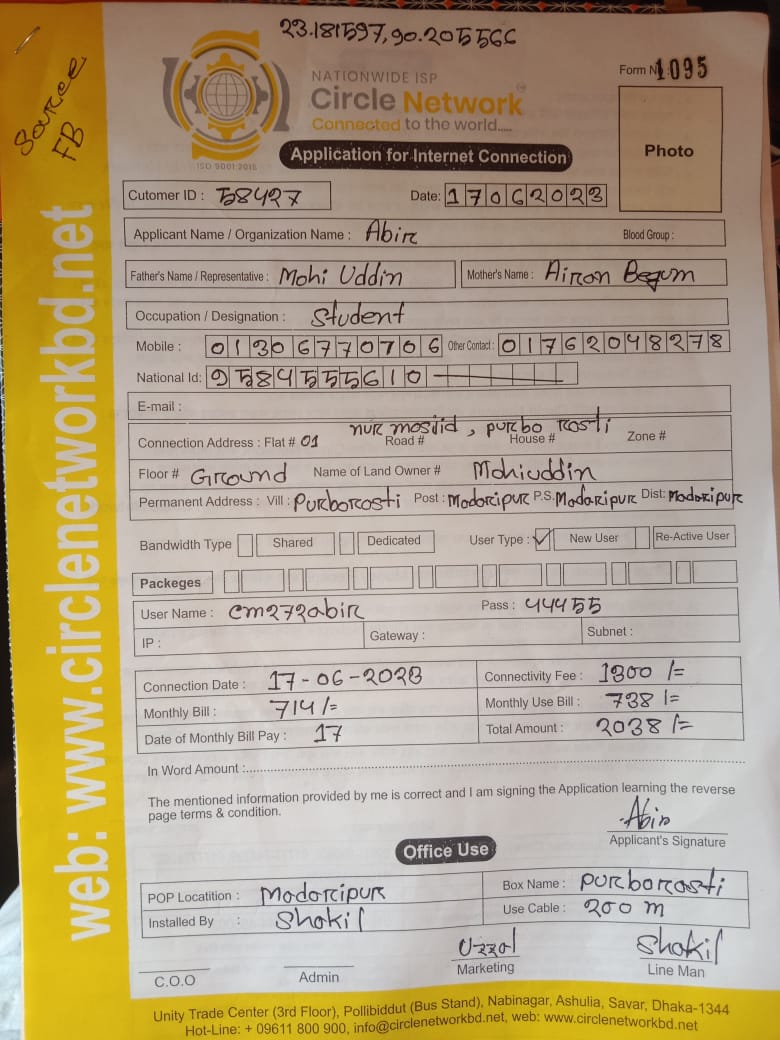 23.181597,90.205566
Source
FB
NATIONWIDE ISP
Circle Network
Connected to the world.....
ISO 9001:2015
Form No 1095
Photo
Application for Internet Connection
Cutomer ID : 58427
Date: 17062023
Applicant Name / Organization Name : Abir
Blood Group :
Father's Name / Representative : Mohi Uddin
Mother's Name : Airon Begum
Occupation / Designation : Student
Mobile : 01306770706 Other Contact : 01762048278
National Id: 9584555610
E-mail :
nur mosjid, purbo rasti
Connection Address : Flat # 01 Road # House # Zone #
Floor # Ground Name of Land Owner # Mohiuddin
Permanent Address : Vill : Purborasti Post : Madaripur P.S. Madaripur Dist: Madaripur
Bandwidth Type Shared Dedicated User Type : ✓ New User Re-Active User
Packeges
User Name : cm272abir Pass : 44455
IP : Gateway : Subnet :
Connection Date : 17-06-2023 Connectivity Fee : 1300/=
Monthly Bill : 714/= Monthly Use Bill : 738/=
Date of Monthly Bill Pay : 17 Total Amount : 2038/=
In Word Amount :
The mentioned information provided by me is correct and I am signing the Application learning the reverse
page terms & condition.
Abir
Applicant's Signature
Office Use
POP Locatition : Madaripur Box Name : purborasti
Installed By : Shakil Use Cable : 200 m
Uzzal Shakil
C.O.O Admin Marketing Line Man
Unity Trade Center (3rd Floor), Pollibiddut (Bus Stand), Nabinagar, Ashulia, Savar, Dhaka-1344
Hot-Line: + 09611 800 900, info@circlenetworkbd.net, web: www.circlenetworkbd.net
web: www.circlenetworkbd.net